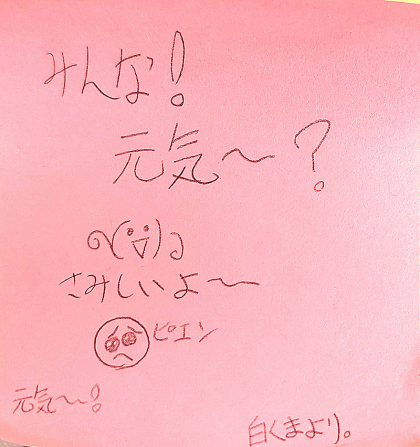 みんな!
元気〜?
さみしいよ〜
ピエン
元気〜!
白くまより。